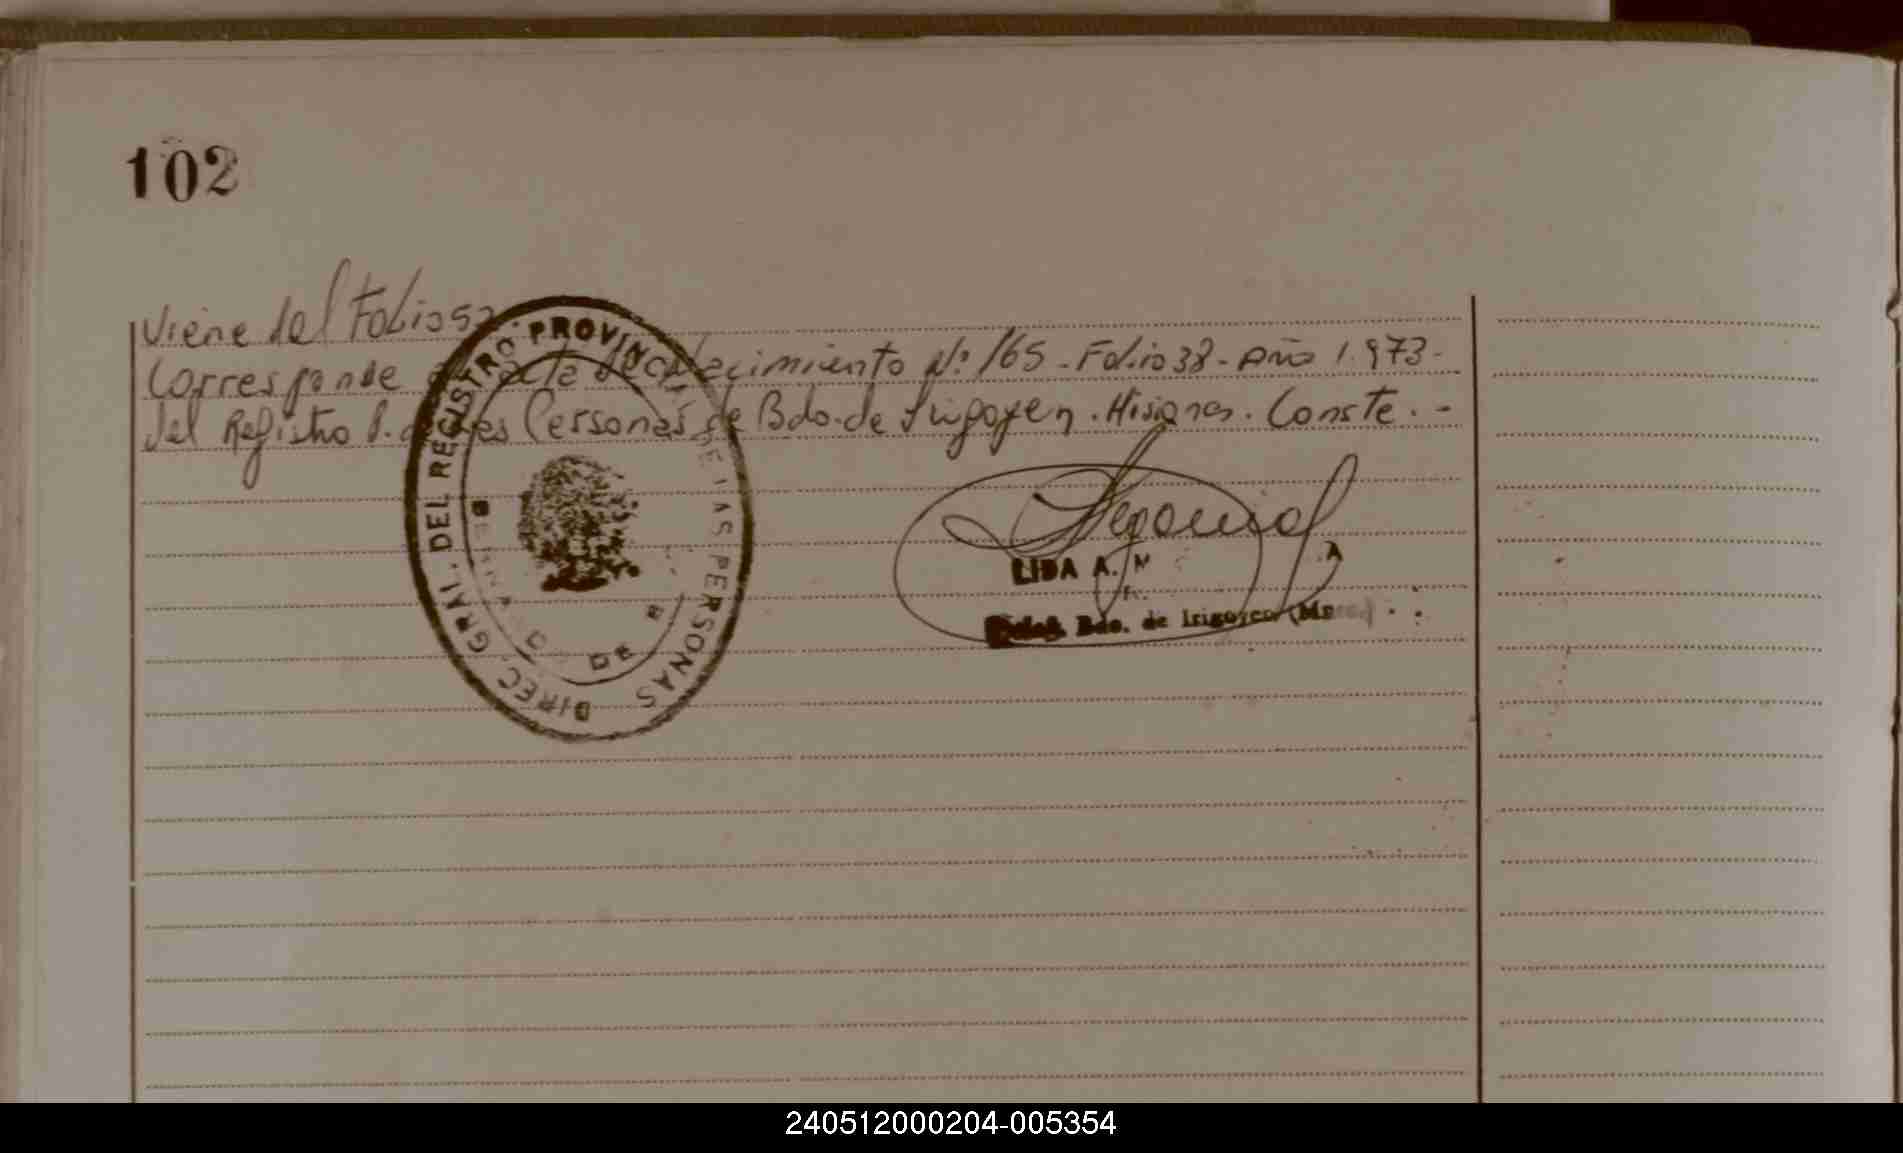 102
Viene del Folio 52
Corresponde acta de reconocimiento Nº 165 - Folio 38 - Año 1.973 -
del Registro P. de las Personas de Bdo. de Irigoyen. Misiones. Conste. -
DIREC. GRAL. DEL REGISTRO PROVINCIAL DE LAS PERSONAS
LIDA A. M
Bdo. de Irigoyen (Mnes.)
240512000204-005354